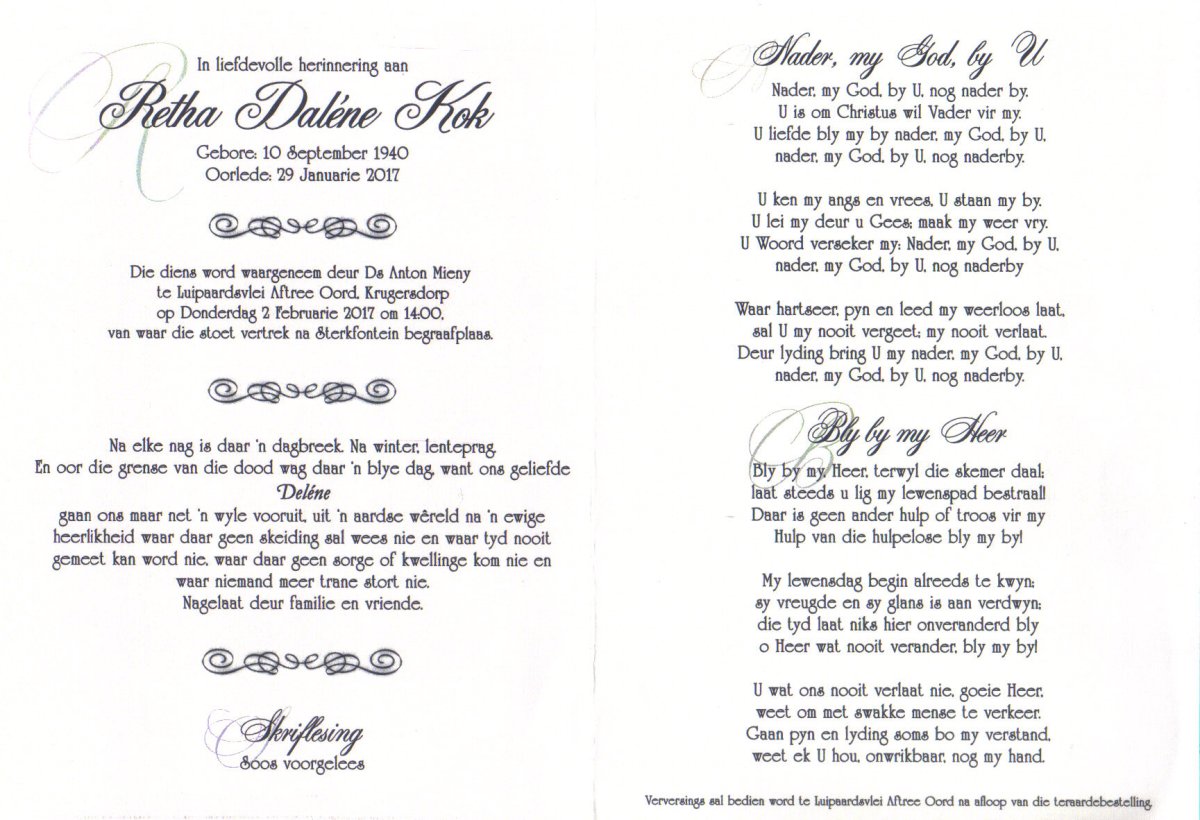 In liefdevolle herinnering aan
Retha Daléne Kok
Gebore: 10 September 1940
Oorlede: 29 Januarie 2017
Die diens word waargeneem deur Ds Anton Mieny
te Luipaardsvlei Aftree Oord, Krugersdorp
op Donderdag 2 Februarie 2017 om 14:00,
van waar die stoet vertrek na Sterkfontein begraafplaas.
Na elke nag is daar 'n dagbreek. Na winter, lenteprag.
En oor die grense van die dood wag daar 'n blye dag, want ons geliefde
Deléne
gaan ons maar net 'n wyle vooruit, uit 'n aardse wêreld na 'n ewige
heerlikheid waar daar geen skeiding sal wees nie en waar tyd nooit
gemeet kan word nie, waar daar geen sorge of kwellinge kom nie en
waar niemand meer trane stort nie.
Nagelaat deur familie en vriende.
Skriflesing
Soos voorgelees
Nader, my God, by U
Nader, my God, by U, nog nader by.
U is om Christus wil Vader vir my.
U liefde bly my by nader, my God, by U,
nader, my God, by U, nog naderby.
U ken my angs en vrees, U staan my by.
U lei my deur u Gees; maak my weer vry.
U Woord verseker my: Nader, my God, by U,
nader, my God, by U, nog naderby
Waar hartseer, pyn en leed my weerloos laat,
sal U my nooit vergeet; my nooit verlaat.
Deur lyding bring U my nader, my God, by U,
nader, my God, by U, nog naderby.
Bly by my Heer
Bly by my, Heer, terwyl die skemer daal;
laat steeds u lig my lewenspad bestraal!
Daar is geen ander hulp of troos vir my
Hulp van die hulpelose bly my by!
My lewensdag begin alreeds te kwyn;
sy vreugde en sy glans is aan verdwyn;
die tyd laat niks hier onveranderd bly
o Heer wat nooit verander, bly my by!
U wat ons nooit verlaat nie, goeie Heer,
weet om met swakke mense te verkeer.
Gaan pyn en lyding soms bo my verstand,
weet ek U hou, onwrikbaar, nog my hand.
Verversings sal bedien word te Luipaardsvlei Aftree Oord na afloop van die teraardebestelling.